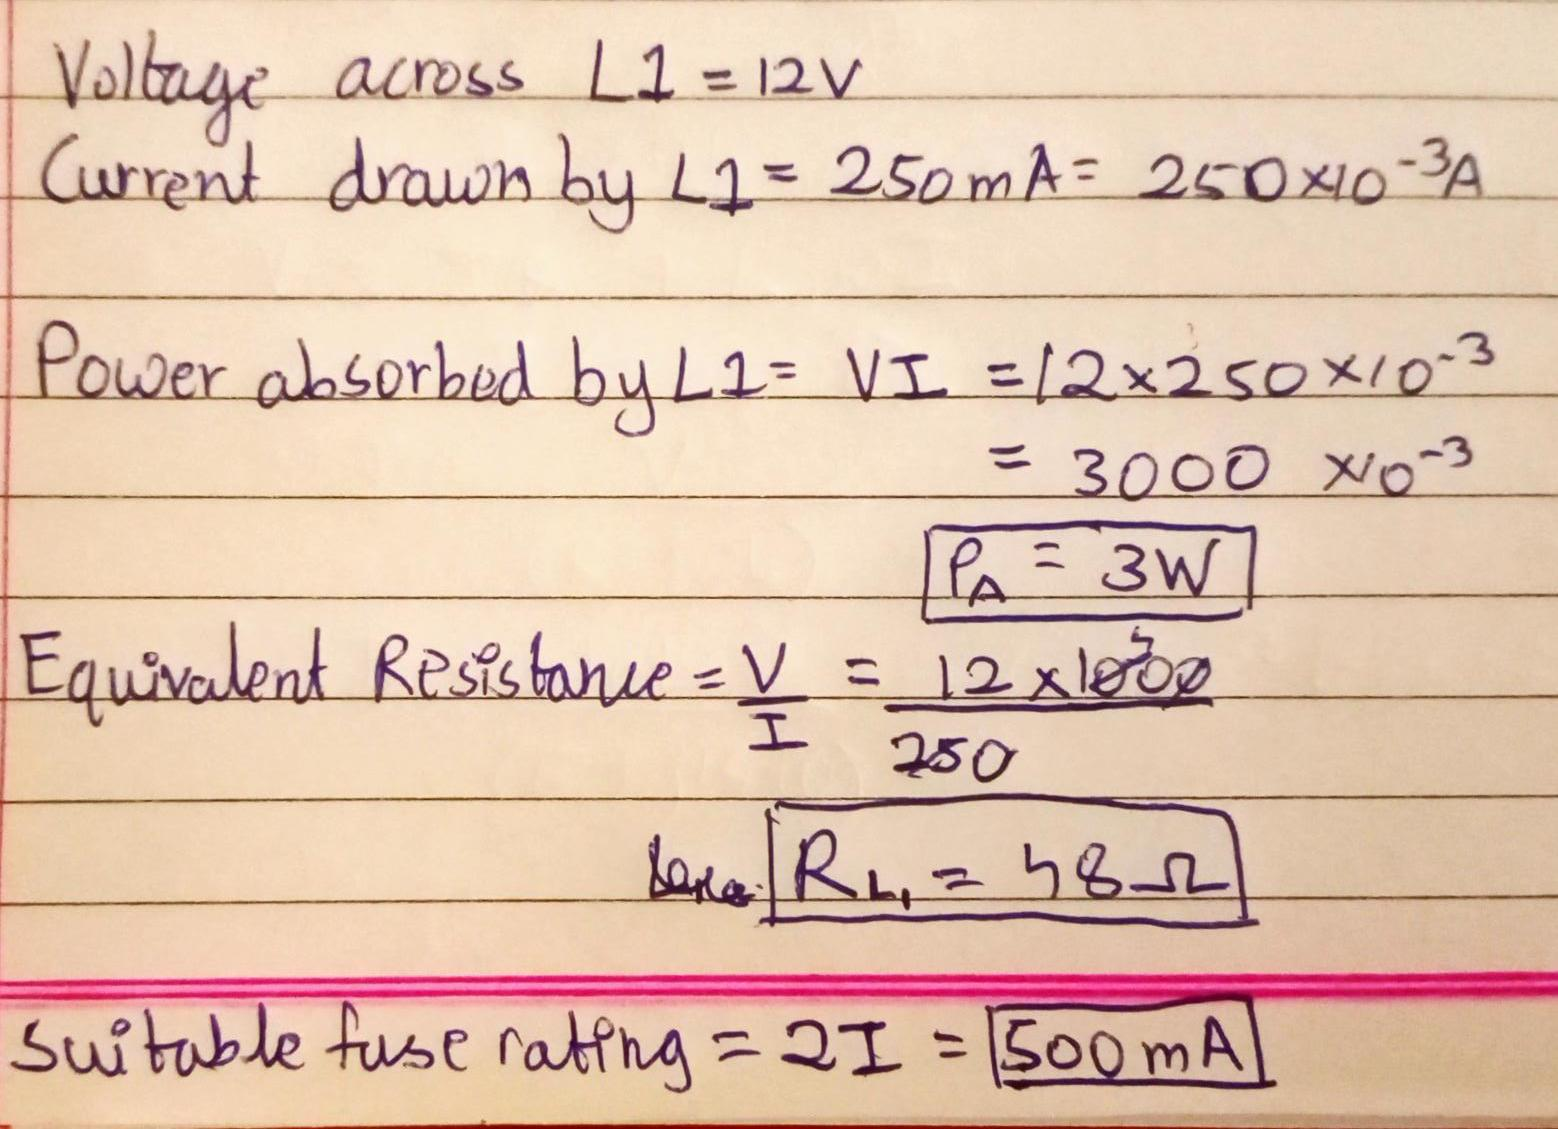 Voltage across L1 = 12V
Current drawn by L1 = 250mA = 250×10⁻³A
Power absorbed by L1 = VI = 12×250×10⁻³
= 3000 ×10⁻³
P_A = 3W
Equivalent Resistance = V/I = 12×1000/250
R_L1 = 48Ω
Suitable fuse rating = 2I = 500mA